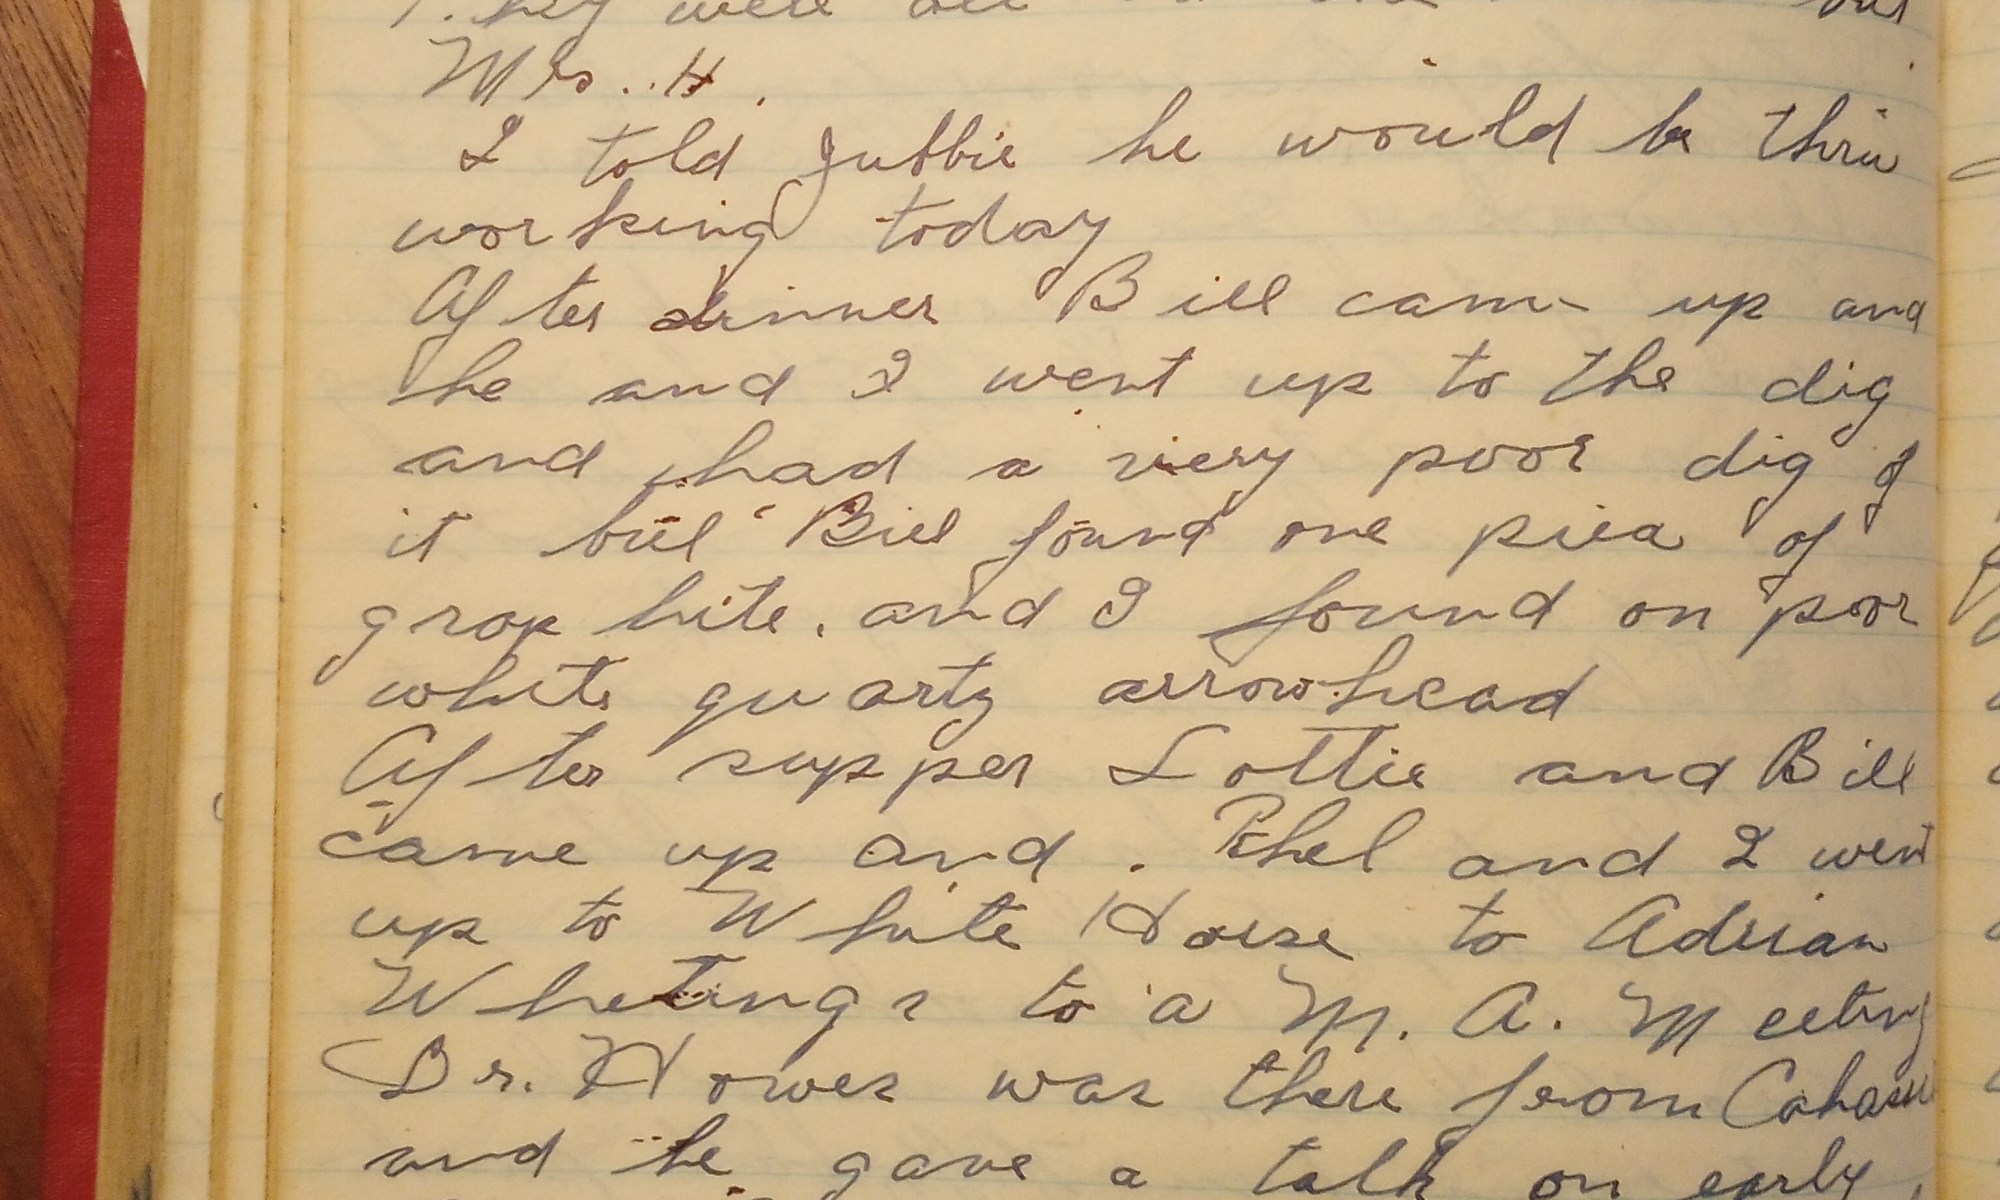 They were all
Mrs. H.
I told Jubbie he would be thru
working today
After dinner Bill came up and
he and I went up to the dig
and had a very poor dig of
it but Bill found one piece of
graphite. and I found on poor
white quartz arrowhead
After supper Lottie and Bill
came up and. Ethel and I went
up to White Horse to Adrian
Whetings to a M. A. Meeting
Dr. Howes was there from Cohasset
and he gave a talk on early